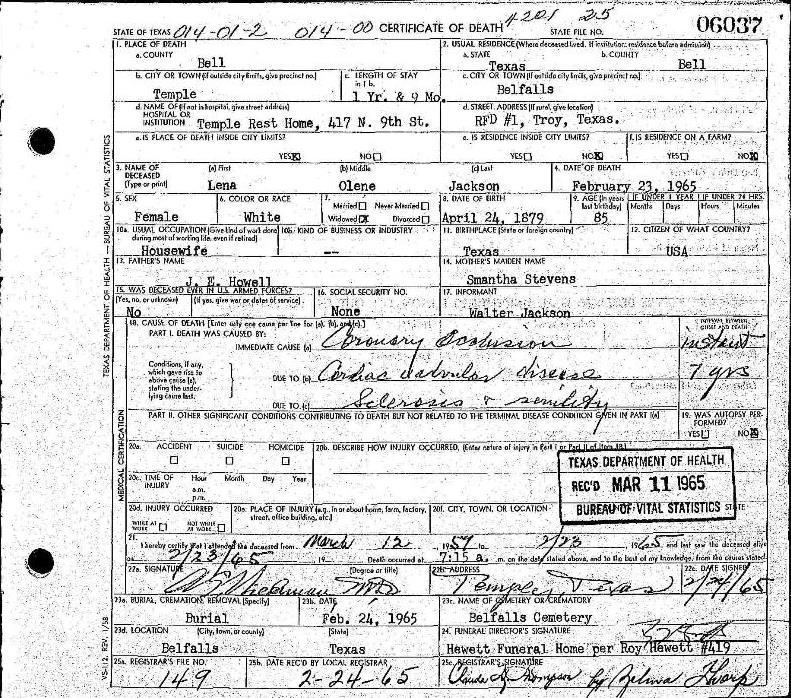 STATE OF TEXAS 014-01-2 014-00 CERTIFICATE OF DEATH #201 25 STATE FILE NO. 06037
1. PLACE OF DEATH 2. USUAL RESIDENCE (Where deceased lived. If institution: residence before admission)
a. COUNTY a. STATE b. COUNTY
Bell Texas Bell
b. CITY OR TOWN (If outside city limits, give precinct no.) c. LENGTH OF STAY in 1 b. c. CITY OR TOWN (If outside city limits, give precinct no.)
Temple 1 Yr. & 9 Mo. Belfalls
d. NAME OF (If not in hospital, give street address) HOSPITAL OR INSTITUTION d. STREET ADDRESS (If rural, give location)
Temple Rest Home, 417 N. 9th St. RFD #1, Troy, Texas.
e. IS PLACE OF DEATH INSIDE CITY LIMITS? e. IS RESIDENCE INSIDE CITY LIMITS? f. IS RESIDENCE ON A FARM?
YES X NO YES NO X YES NO X
3. NAME OF DECEASED (Type or print) (a) First (b) Middle (c) Last 4. DATE OF DEATH
Lena Olene Jackson February 23, 1965
5. SEX 6. COLOR OR RACE 7. Married Never Married 8. DATE OF BIRTH 9. AGE (In years last birthday) IF UNDER 1 YEAR IF UNDER 24 HRS.
Months Days Hours Minutes
Female White Widowed X Divorced April 24, 1879 85
10a. USUAL OCCUPATION (Give kind of work done during most of working life, even if retired) 10b. KIND OF BUSINESS OR INDUSTRY 11. BIRTHPLACE (State or foreign country) 12. CITIZEN OF WHAT COUNTRY?
Housewife -- Texas USA
13. FATHER'S NAME 14. MOTHER'S MAIDEN NAME
J. E. Howell Smantha Stevens
15. WAS DECEASED EVER IN U.S. ARMED FORCES? 16. SOCIAL SECURITY NO. 17. INFORMANT
(Yes, no, or unknown) (If yes, give war or dates of service)
No None Walter Jackson
18. CAUSE OF DEATH [Enter only one cause per line for (a), (b), and (c).] INTERVAL BETWEEN ONSET AND DEATH
PART I. DEATH WAS CAUSED BY:
IMMEDIATE CAUSE (a) Coronary Occlusion instant
Conditions, if any, which gave rise to above cause (a), stating the underlying cause last.
DUE TO (b) Cardiac valvular disease 7 yrs
DUE TO (c) Sclerosis & senility
PART II. OTHER SIGNIFICANT CONDITIONS CONTRIBUTING TO DEATH BUT NOT RELATED TO THE TERMINAL DISEASE CONDITION GIVEN IN PART I(a) 19. WAS AUTOPSY PERFORMED?
YES NO X
20a. ACCIDENT SUICIDE HOMICIDE 20b. DESCRIBE HOW INJURY OCCURRED. (Enter nature of injury in Part I or Part II of Item 18.)
20c. TIME OF INJURY Hour Month Day Year
a.m.
p.m.
TEXAS DEPARTMENT OF HEALTH
REC'D MAR 11 1965
BUREAU OF VITAL STATISTICS
20d. INJURY OCCURRED 20e. PLACE OF INJURY (e.g., in or about home, farm, factory, street, office building, etc.) 20f. CITY, TOWN, OR LOCATION STATE
WHILE AT WORK NOT WHILE AT WORK
21. I hereby certify that I attended the deceased from March 12 1957 to 2/23 1965 and last saw the deceased alive
2/23/65 19 Death occurred at 7:15 a. m. on the date stated above, and to the best of my knowledge, from the causes stated.
22a. SIGNATURE (Degree or title) 22b. ADDRESS 22c. DATE SIGNED
MD Temple, Texas 2/24/65
23a. BURIAL, CREMATION, REMOVAL (Specify) 23b. DATE 23c. NAME OF CEMETERY OR CREMATORY
Burial Feb. 24, 1965 Belfalls Cemetery
23d. LOCATION (City, town, or county) (State) 24. FUNERAL DIRECTOR'S SIGNATURE
Belfalls Texas Hewett Funeral Home per Roy Hewett #419
25a. REGISTRAR'S FILE NO. 25b. DATE REC'D BY LOCAL REGISTRAR 25c. REGISTRAR'S SIGNATURE
149 2-24-65 Claude A. Thompson by Zelma Tharp
TEXAS DEPARTMENT OF HEALTH — BUREAU OF VITAL STATISTICS
MEDICAL CERTIFICATION
VS-112, REV. 1/58